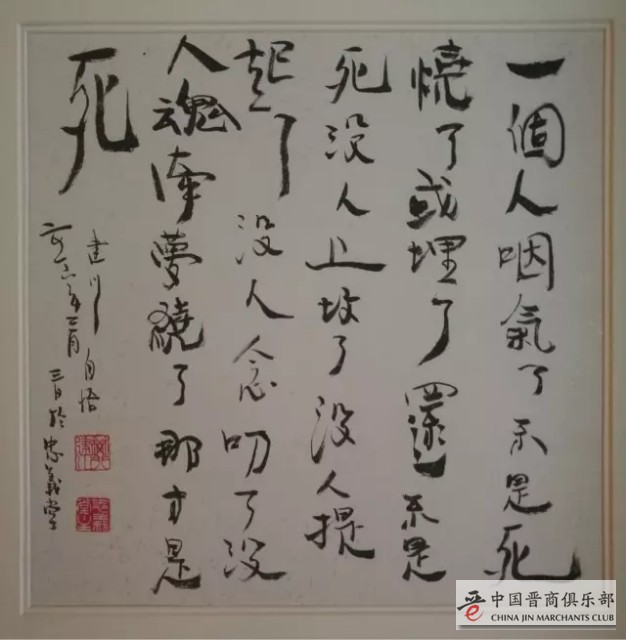 一個人咽氣了不是死
燒了或埋了還不是
死没人上坟了没人提
起了没人念叨了没
人魂牽夢繞了那才是
死
建川自悟
年二月三日於忠義堂
中国晋商俱乐部
CHINA JIN MARCHANTS CLUB